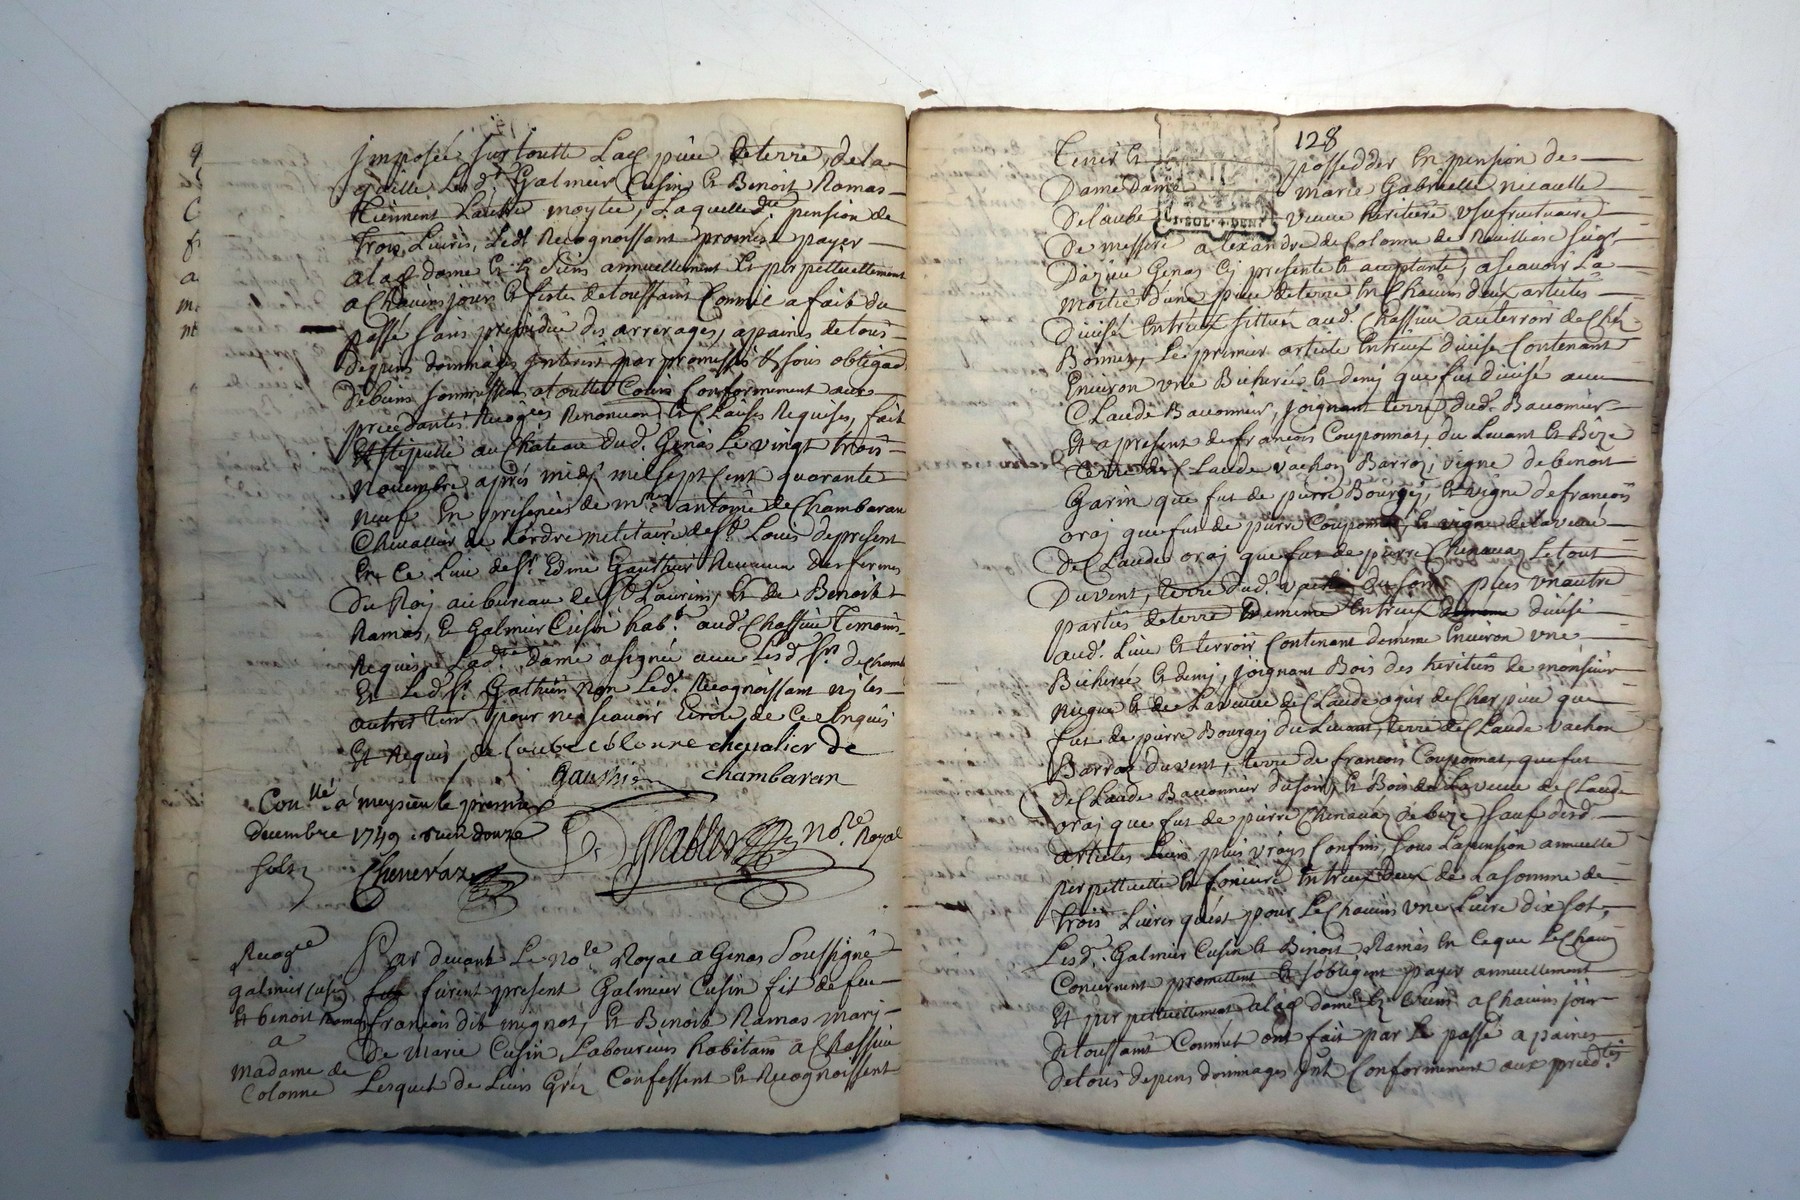 imposée sur toutte Lad piece de terre, de la
quelle Lesd. Galmier Cusin et Benoit Ramas
tiennent Lautre moytee, Laquelle dte pension de
trois Livres, Ledt Recognoissant promise payer
a lad dame et es siens annuellement et perpettuellement
a Chacuns jours et festes de toussaints Comme a fait du
passé sans prejudice des arrerages, a paines de tous
depens dommages interest par promesses et sous obligaõn
de biens soumissions a touttes Cours Conformement aux
precedantes Recogces Renonciaõn et Clauses Requises, fait
et stipullé au Château dud. Genas Le vingt trois
Novembre après midy mil sept Cent quarante
neuf En presences de mre antoine de Chambaran
Chevallier de Lordre militaire de St Louis de present
En Ce Lieu de Sr Edme Gauthier Receveur des fermes
du Roy au bureau de St Laurins, et de Benoit
Ramas, et Galmier Cusin habt. aud Chassieu temoins
Requis et Ladte Dame a signée avec Lesd Srs de Chamb
et Led Sr. Gathier non Led. Recognoissant ny les
autres tem pour ne scavoir Ecrire de Ce Enquis
et Requis, de laube colonne chevalier de
Gauthier chambaran
Conllé a meysieu le premier
decembre 1749 reçu douze
sols
Cheneraz
Nore. Royal
Recogce
galmier Cusin
et benoit Ramas
a
madame de
Colonne
Par devant Le Nore Royal a Genas Soussigné
furent present Galmier Cusin fils de feu
francois dit mignot, et Benoit Ramas mary
de Marie Cusin Laboureurs habitans a Chassieu
Lesquels de Leurs Gréz Confessent et Recognoissent
128
Tenir et possedder En pension de
Dame Dame marie Gabrielle nicaulle
Delaube veuve heritiere Usufructuaire
SOL DEN
De messire alexandre de Colonne de
Dajeu Genas Cy presente et acceptante, a scavoir La
moitié d'une piece de terre En Chacuns deux articles
Divisés Entreux sittuée aud. Chassieu au terroir de Ché
Bonney, Le premier article Entreux divisé Contenant
Environ une Bicherée et demy que fut divisé avec
Claude Bacconnier, joignant terre dud. Bacconnier
et a present de francois Couponnat, du Levant et Bize
terre de Claude Vachon Barroz, vigne de benoit
Garin que fut de pierre Bourgey, et vigne de francois
oraj que fut de pierre Couponnat, et vigne de la veuve
de Claude oraj que fut de pierre Chenavaz Le tout
Du vent, terre dud. vachon du soir, plus un autre
parties de terre de meme Entreux divisé
aud. Lieu et terroir Contenant de meme Environ une
Bicherée et demy, joignant Bois des heritiers de monsieur
et de La veuve de Claude ogier de Charpieu que
fut de pierre Bourgey du Levant, terre de Claude Vachon
Barroz du vent, terre de francois Couponnat, que fut
de Claude Bacconnier du soir, et Bois de La veuve de Claude
oraj que fut de pierre Chenavaz de bize sauf desd.
articles Leurs plus vrays Confins, Sous La pension annuelle
perpettuelle et fonciere Entreux deux de La somme de
trois Livres qu'est pour Le Chacuns une Livre dix sol,
Lesd. Galmier Cusin et Benoit Ramas En Ceque Le Chacun
Concernent promettent et s'obligent payer annuellement
et perpettuellement a lad dame et es siens a Chacuns jour
de toussaint Comme ont fait par Le passé a paines
de tous depens dommages int Conformement aux preced.tes